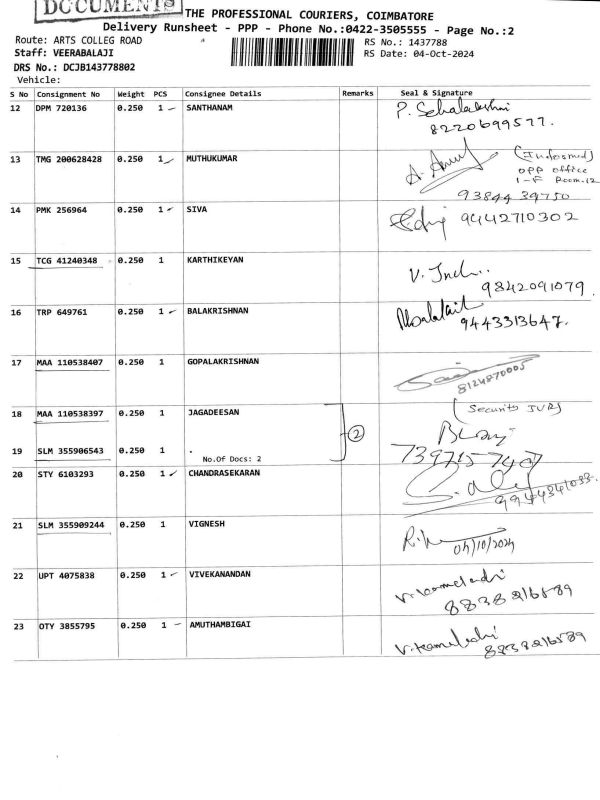 DOCUMENTS
THE PROFESSIONAL COURIERS, COIMBATORE
Delivery Runsheet - PPP - Phone No.:0422-3505555 - Page No.:2
Route: ARTS COLLEG ROAD
RS No.: 1437788
Staff: VEERABALAJI
RS Date: 04-Oct-2024
DRS No.: DCJB143778802
Vehicle:
S No Consignment No Weight PCS Consignee Details Remarks Seal & Signature
12 DPM 720136 0.250 1 SANTHANAM
8220699577.
13 TMG 200628428 0.250 1 MUTHUKUMAR
OPP OFFICE
9384439750
14 PMK 256964 0.250 1 SIVA
9442710302
15 TCG 41240348 0.250 1 KARTHIKEYAN
9842091079
16 TRP 649761 0.250 1 BALAKRISHNAN
9443313647.
17 MAA 110538407 0.250 1 GOPALAKRISHNAN
8124870005
18 MAA 110538397 0.250 1 JAGADEESAN
2
19 SLM 355906543 0.250 1 .
No.Of Docs: 2
20 STY 6103293 0.250 1 CHANDRASEKARAN
21 SLM 355909244 0.250 1 VIGNESH
04/10/2024
22 UPT 4075838 0.250 1 VIVEKANANDAN
8838216589
23 OTY 3855795 0.250 1 AMUTHAMBIGAI
8838216589